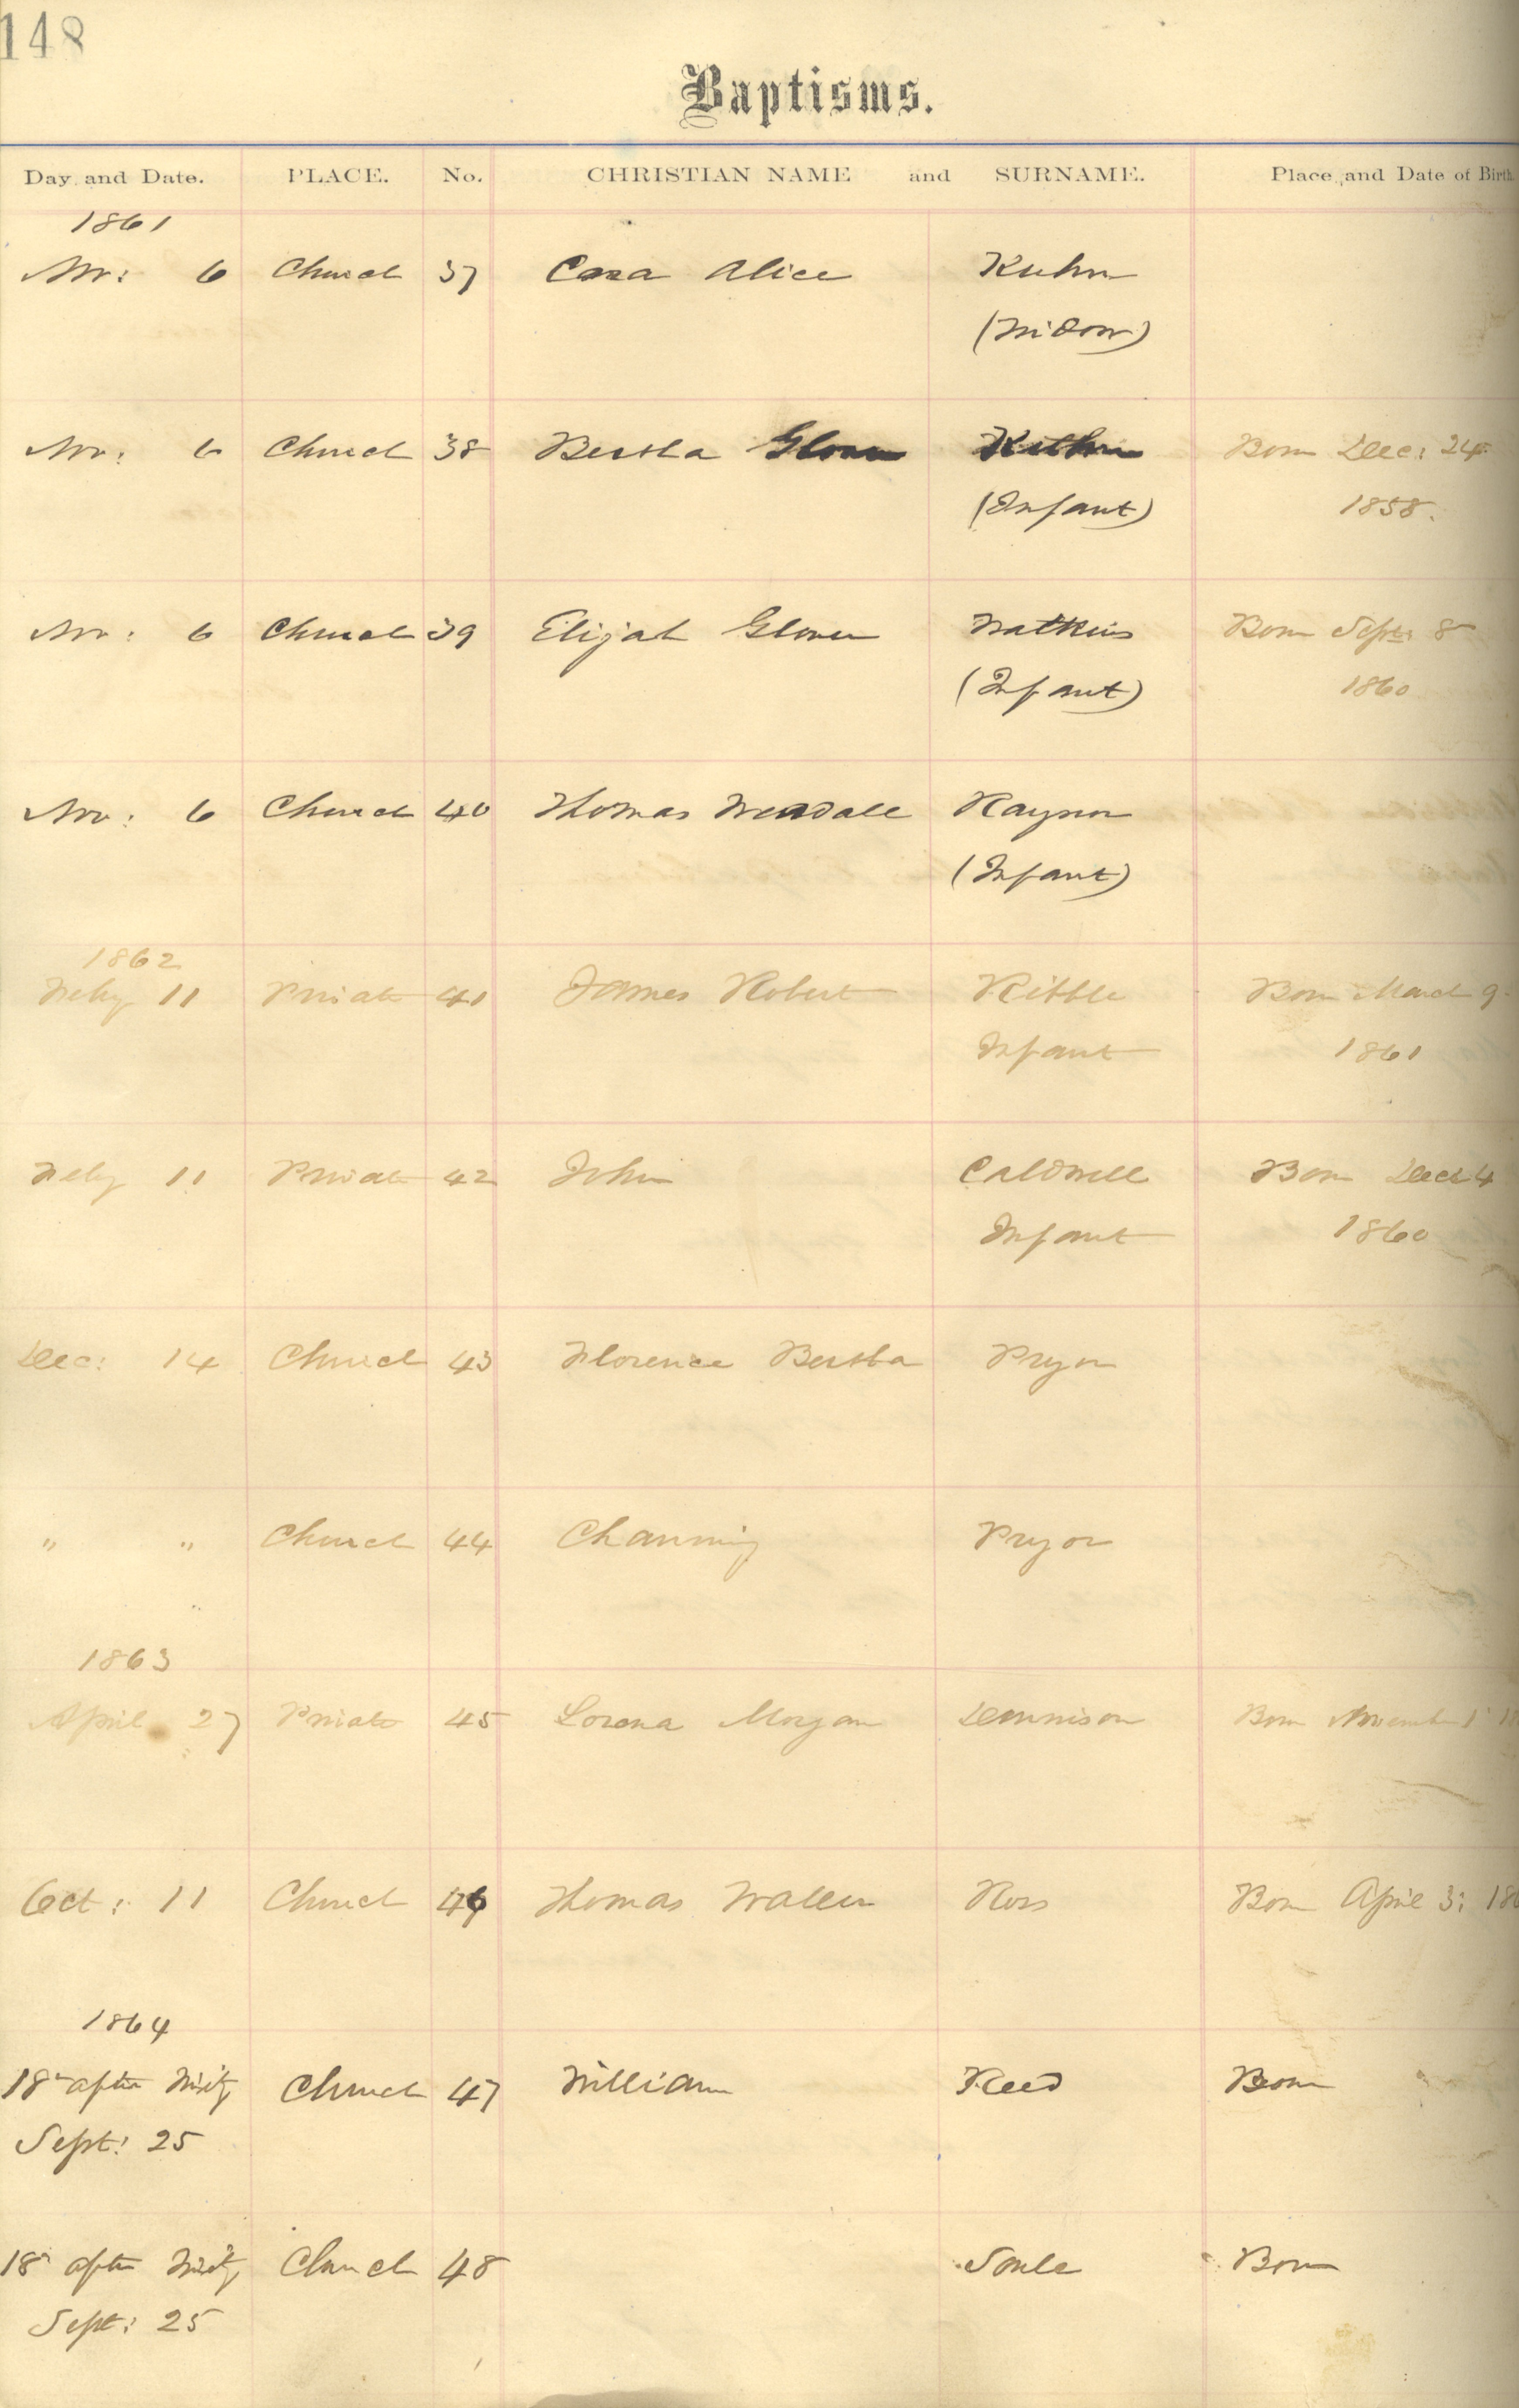 148
Baptisms.
Day and Date. PLACE. No. CHRISTIAN NAME and SURNAME. Place and Date of Birth
1861
Nov: 6 Church 37 Cora Alice Kuhn
(Widow)
Nov: 6 Church 38 Bertha Glover Kuhn Born Dec: 24
(Infant) 1858.
Nov: 6 Church 39 Elijah Glover Watkins Born Sept: 8
(Infant) 1860
Nov: 6 Church 40 Thomas Raynor
(Infant)
1862
Feby 11 Private 41 James Robert Kibble Born March 9
Infant 1861
Feby 11 Private 42 John Caldwell Born Dec 4
Infant 1860
Dec: 14 Church 43 Florence Bertha Pryor
" " Church 44 Channing Pryor
1863
April 27 Private 45 Lorena Morgan Dennison Born November 1
Oct: 11 Church 46 Thomas Waller Ross Born April 3: 186
1864
18 after Trinity Church 47 William Reed Born
Sept: 25
18 after Trinity Church 48 Soule Born
Sept: 25